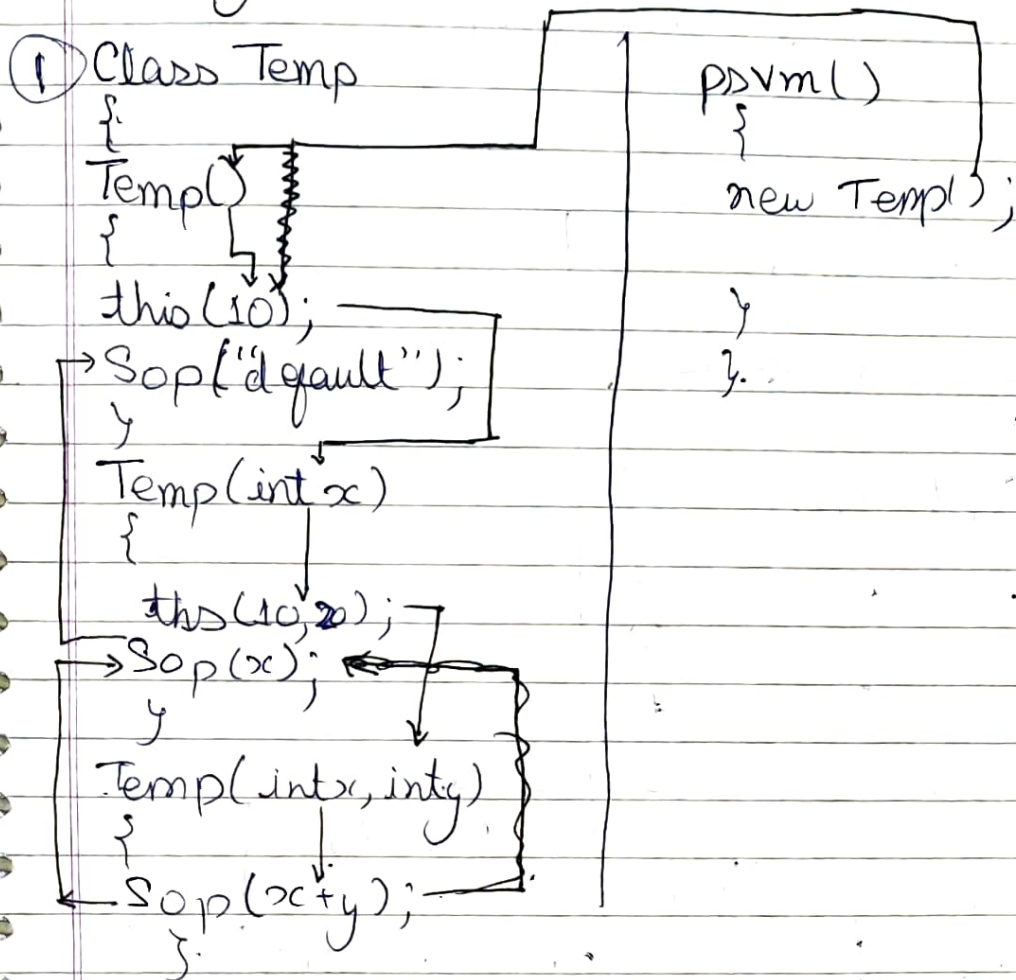 1 Class Temp
{
Temp()
{
this(10);
Sop("default");
}
Temp(int x)
{
ths(10,20);
Sop(x);
}
Temp(int x, int y)
{
Sop(x+y);
}
psvm()
{
new Temp();
}
}